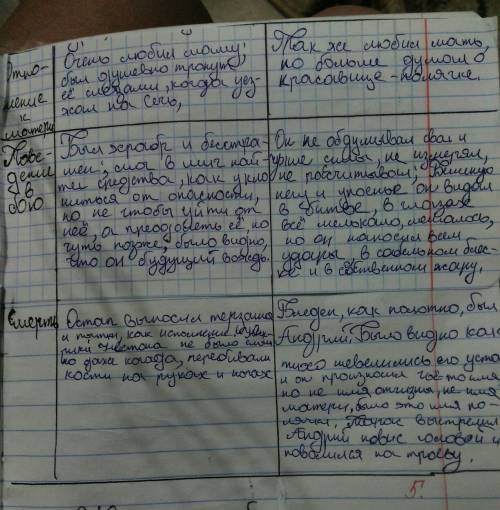 Отно-
шение
к
матери
Очень любил маму,
был душевно тронут
её слезами, когда уез-
жал на Сечь,
Так же любил мать,
но больше думал о
красавице-полячке.
Пове-
дение
в
бою
Был храбр и бесстра-
шен; смог в миг най-
ти средства, как укло
ниться от опасности,
но не чтобы уйти от
неё, а преодолеть её, но
чуть позже, было видно,
что он будущий вождь.
Он не обдумывал свои и
чужие силы, не измерял,
не рассчитывал; Бешеную
негу и упоенье он видел
в битве, в глазах
всё мелькало, мешалось,
но он наносил всем
удары, в сабельном блес-
ке и в собственном жару.
Смерть
Остап выносил терзания
и пытки, как исполин
не было слыш
но даже когда, перебивали
кости на руках и ногах
Бледен, как полотно, был
Андрий. Было видно как
тихо шевелились его уста
и он произносил чьё-то имя
но не имя отчизны, не имя
матери, было это имя по-
лячки. Тарас выстрелил
Андрий повис головой и
повалился на траву.
5.